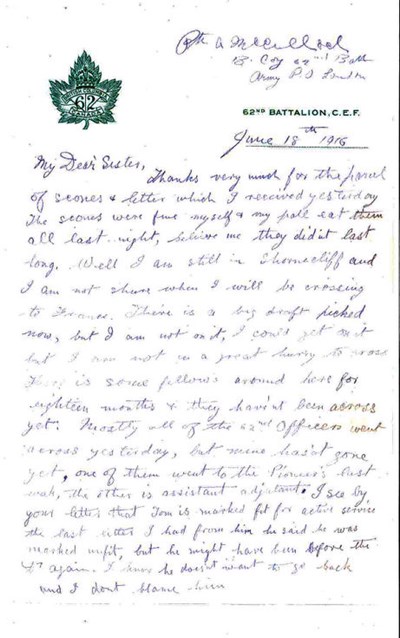 Pte A McCulloch
B. Coy 62nd Batt
Army P.O London
BRITISH COLUMBIA
62
CANADA
62ND BATTALION, C.E.F.
June 18th 1916
My Dear Sister,
Thanks very much for the parcel
of scones & letter which I received yesterday
The scones were fine myself & my pall eat them
all last night, believe me they did'nt last
long. Well I am still in Shorncliff and
I am not shure when I will be crossing
to France. There is a big draft picked
now, but I am not on it, I could'nt get on it
but I am not in a great hurry to cross
There is some fellows around here for
eighteen months & they hav'nt been across
yet. Mostly all of the 62nd Officers went
across yesterday, but mine has'nt gone
yet, one of them went to the Pioneers last
week, the other is assistant adjutant. I see by
your letter that Tom is marked fit for active service
the last letter I had from him he said he was
marked unfit, but he might have been before the
again. I know he does'nt want to go back
and I dont blame him